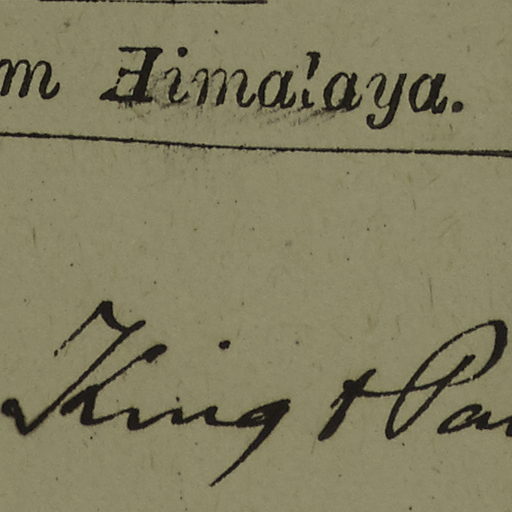 m Himalaya.
King & Pa